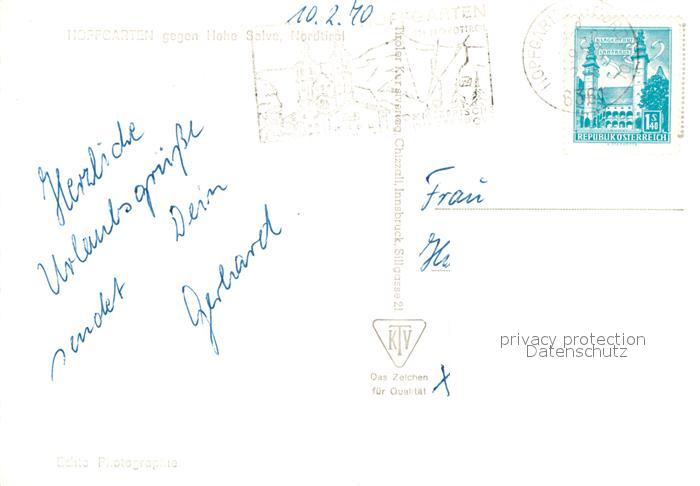 10.2.70
HOPFGARTEN gegen Hohe Salve, Nordtirol
HOPFGARTEN
Tiroler Kunstverlag Chizzali, Innsbruck, Sillgasse 21
KLAGENFURT
LANDHAUS
1.40
S
REPUBLIK ÖSTERREICH
Herzliche
Urlaubsgrüße
sendet Dein
Gerhard
Frau
KTV
Das Zeichen
für Qualität
X
privacy protection
Datenschutz
Echte Photographie